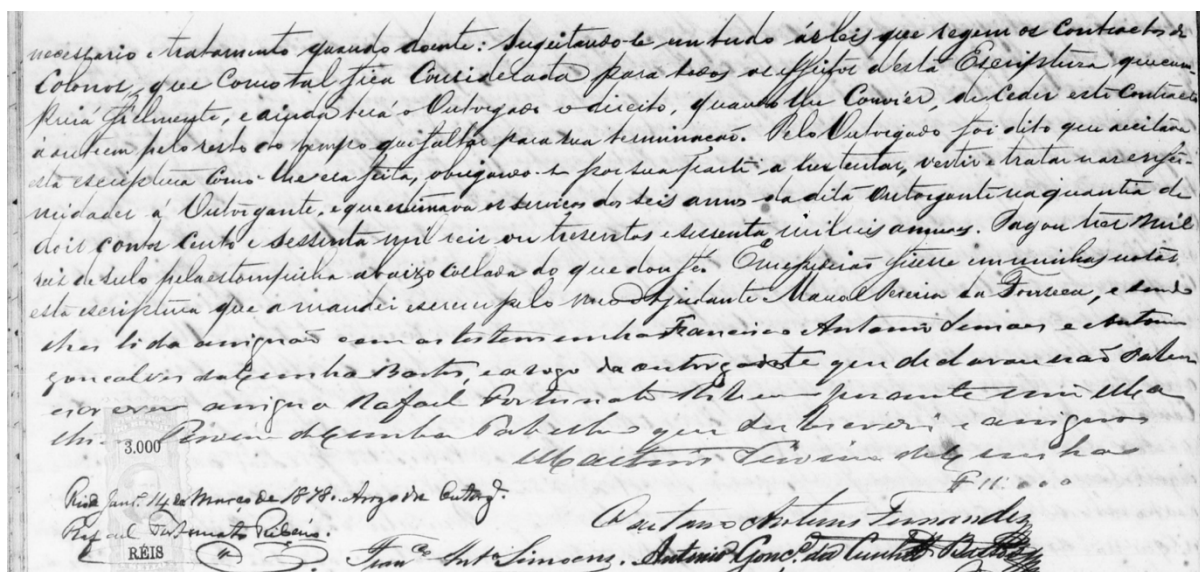 necessario e tratamento quando doente: sugeitando-se em tudo ás leis que regem os Contractos de
Colonos, que como tal fica Considerada para todos os effeitos desta Escriptura, que cum
prirá fielmente, e ainda terá o Outorgado o direito, quando lhe Convier, de Ceder este Contracto
á outrem pelo resto do tempo que faltar para sua terminacão. Pelo Outorgado foi dito que aceitava
esta escriptura como lhe era feita, obrigando-se por sua parte, a sustentar, vestir e tratar nas enfer-
midades á Outorgante, e que estimava os serviços dos seis annos da dita Outorgante na quantia de
dois contos cento e sessenta mil reis ou tresentos e sessenta mil reis annuas. Pagou tres mil
reis de sello pela estampilha abaixo collada do que dou fé. E me pedirão fizesse em minhas notas
esta escriptura que a mandei escrever pelo meo Ajudante Manoel Pereira da Fonseca, e sendo
lhes lida assignão com as testemunhas Francisco Antonio Simões e Antonio
Gonçalves da Cunha Bastos, e a rogo da outorgante que declarou não saber
escrever assigna Rafael Fortunato Ribeiro perante mim Ma
Teixeira da Cunha que subscrevi e assigno
Teixeira da Cunha
3.000
Rio de Janrº 14 de Março de 1878. Arogo da Outorgº.
Rafael Fortunato Ribeiro.
Caetano Antunes Fernandes
RÉIS
Francº Antº Simoens. Antonio Gonçº. da Cunha Bastos